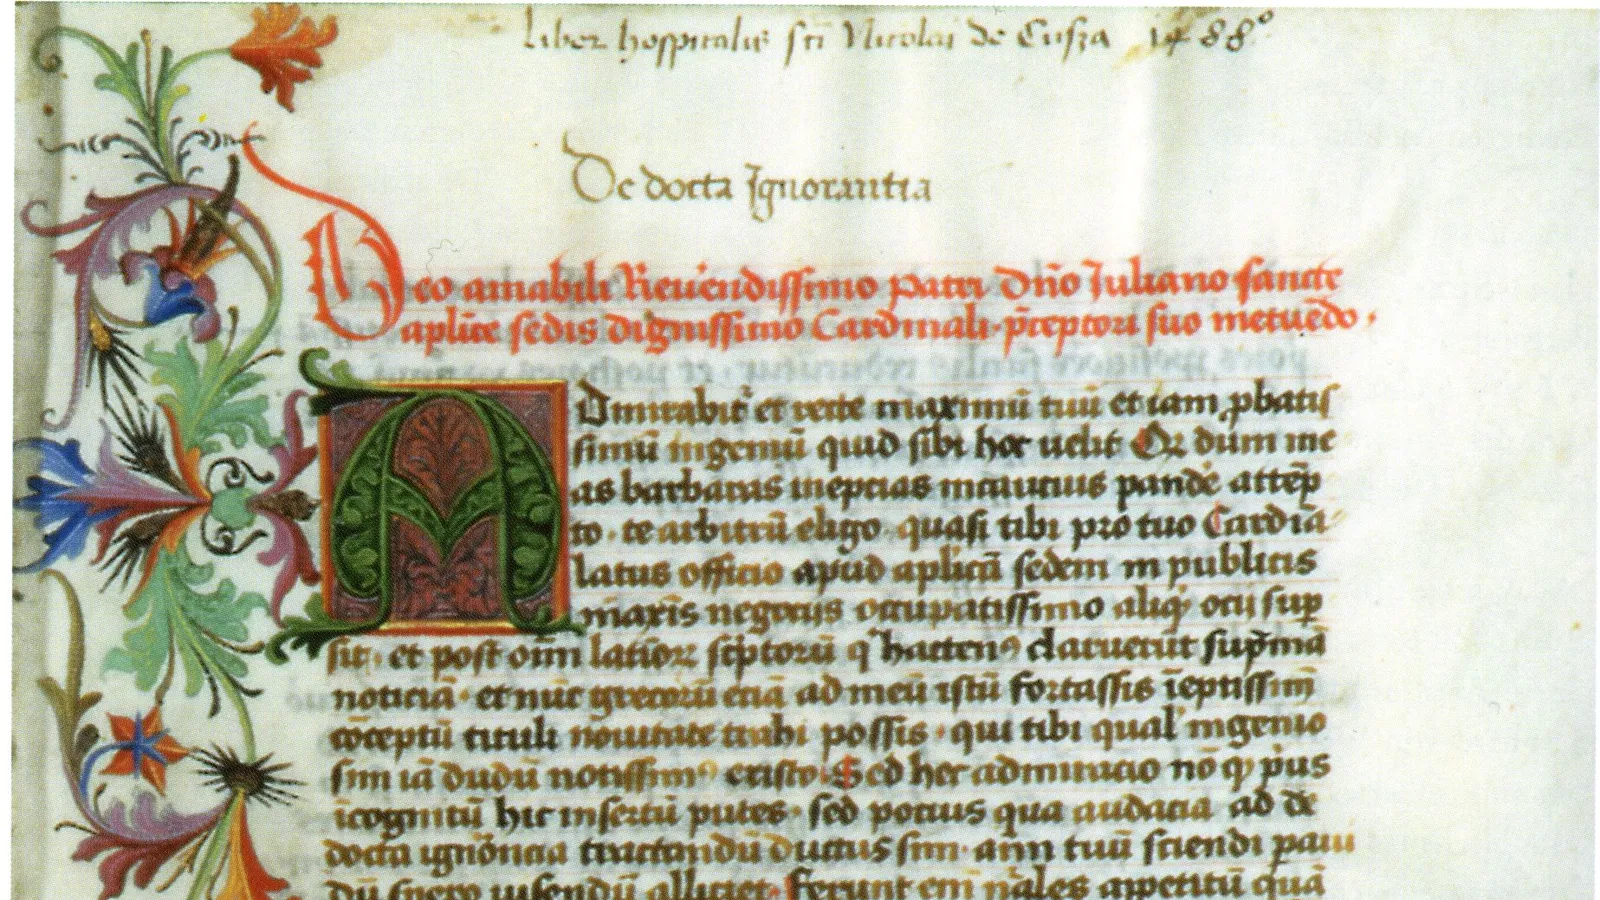 liber hospitalis sci Nicolai de Cusza 1488°
De docta Ignorantia
Deo amabili Reuerendissimo patri dño Juliano sancte
aplice sedis dignissimo Cardinali · p̄ceptori suo metuēdo ·
Admirabit̄ et recte maximū tuū et iam ꝓbatis
simū ingeniū quid sibi hoc uelit Qꝛ dum me
as barbaras ineptias incautius pandē attēp
to · te arbitrū eligo · quasi tibi pro tuo Cardīa
latus officio apud aplicā sedem in publicis
maxīs negocijs occupatissimo aliqͥ ocij sup
sit · et post oīm latīoꝝ sc̄ptorū qͥ hactenꝰ claruerūt sup̄mā
noticiā · et nūc grecorū eciā ad meū istū fortassis īeptissim̄
cōceptū tituli nouitate trahi possis · qui tibi qual' ingenio
sim iā dudū notissimꝰ existo · Sed hec admiracio nō qͥ pͥus
īcognitū hic insertū putes · sed pocius qua audacia ad de
docta ignōncia tractandū ductus sim · aīm tuū sciendi
dū spero uisendū alliciet · Ferunt em̄ n̄ales appetitū quā